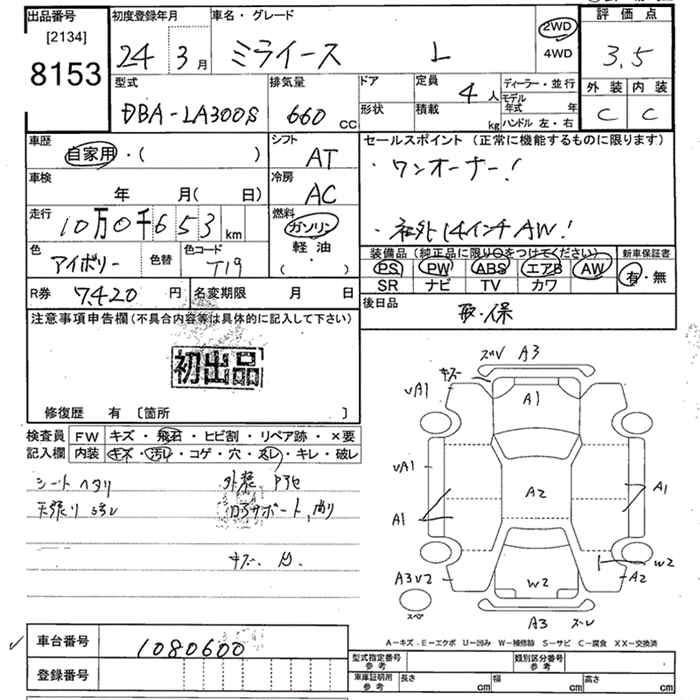 出品番号
[2134]
8153
初度登録年月
24 3月
車名・グレード
ミライース L
2WD
4WD
評価点
3.5
外装 内装
C C
型式
DBA-LA300S
排気量
660 CC
ドア
形状
定員
4人
積載
kg
ディーラー・並行
モデル年式 年
ハンドル 左・右
車歴
自家用・( )
シフト
AT
セールスポイント(正常に機能するものに限ります)
・ワンオーナー!
・社外14インチAW!
車検
年 月( 日)
冷房
AC
走行
10万0千653km
燃料
ガソリン
軽油
( )
色
アイボリー
色替
色コード
T19
装備品(純正品に限り○をつけてください)
PS PW ABS エアB AW
SR ナビ TV カワ
新車保証書
有・無
R券 7420円
名変期限 月 日
後日品
取・保
注意事項申告欄(不具合内容等は具体的に記入して下さい)
初出品
修復歴 有 [箇所 ]
検査員
記入欄
FW キズ・飛石・ヒビ割・リペア跡・×要
内装 キズ・汚レ・コゲ・穴・スレ・キレ・破レ
シートヘタリ
天張り汚レ
ズレV A3
キズ
A1
VA1
VA1
A1
A2
A1
W2
A2
A3V2
W2
スペア
A3 ズレ
A-キズ E-エクボ U-凹み W-補修跡 S-サビ C-腐食 XX-交換済
車台番号
1080600
登録番号
型式指定番号
参考
類別区分番号
参考
車庫証明用
参考
長さ cm
幅 cm
高さ cm